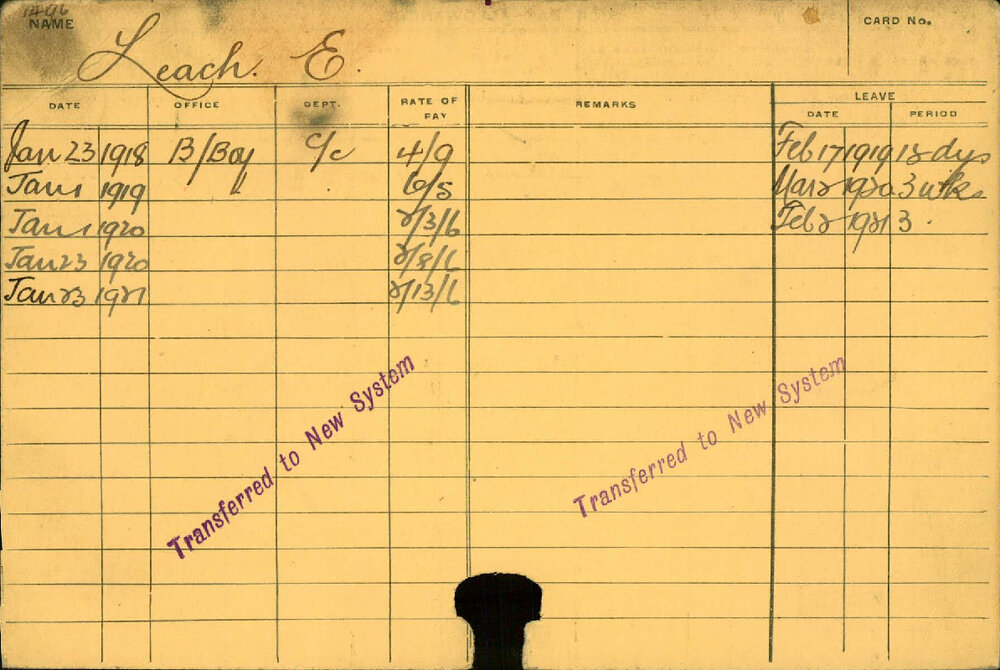 1496
NAME
Leach. E.
CARD No.
DATE OFFICE DEPT. RATE OF PAY REMARKS LEAVE
DATE PERIOD
Jan 23 1918 B/Boy C/c 4/9 Feb 17 1919 12 dys
Jan 1 1919 6/5 Mar 2 1920 3 wks
Jan 1 1920 2/3/6 Feb 2 1921 3
Jan 23 1920 2/8/6
Jan 23 1921 2/13/6
Transferred to New System
Transferred to New System